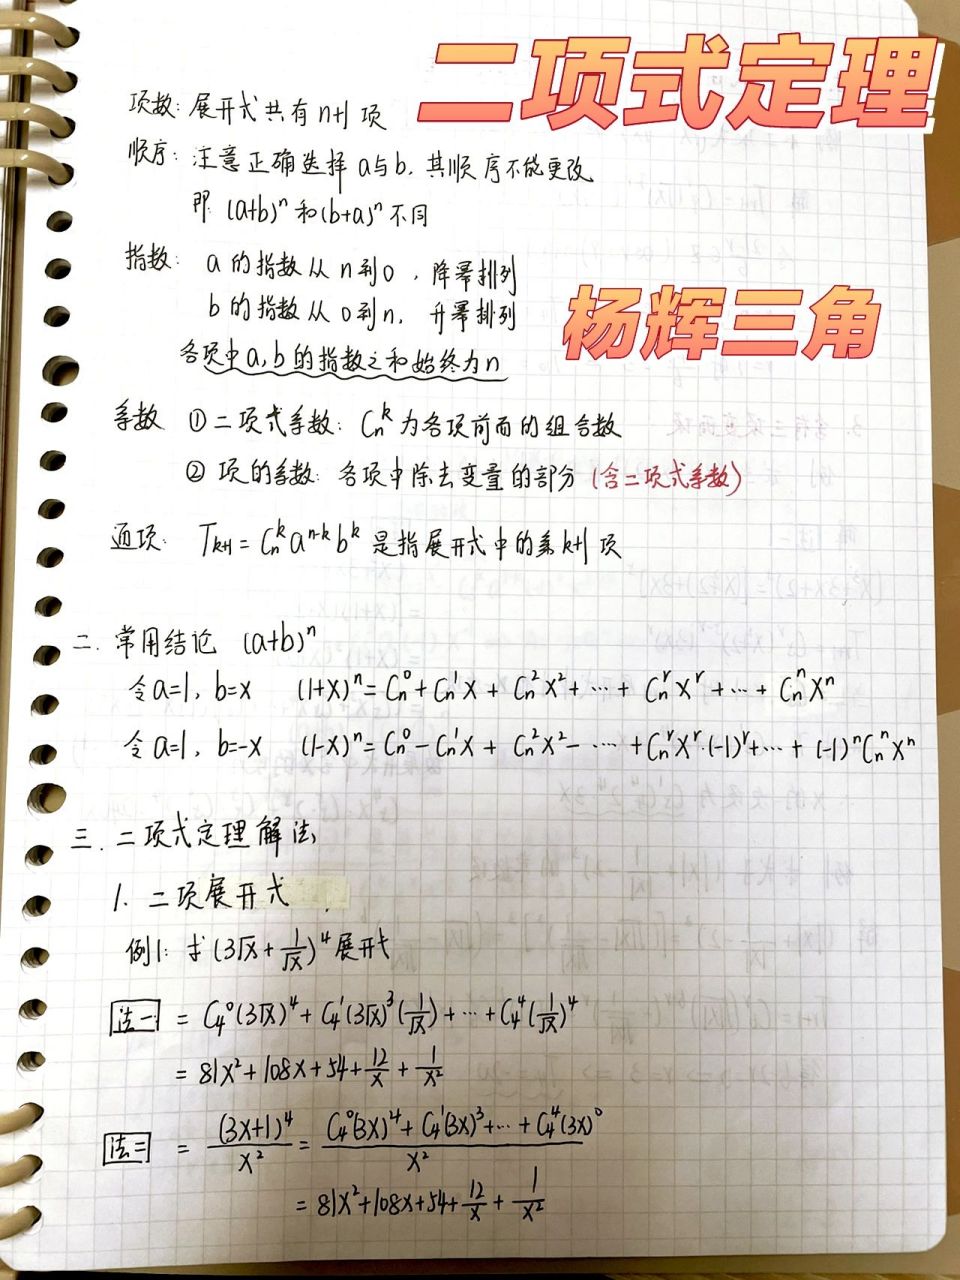 二项式定理
项数: 展开式共有 n+1 项
顺序: 注意正确选择 a与b, 其顺序不能更改
即 (a+b)ⁿ 和 (b+a)ⁿ 不同
指数: a 的指数从 n到0, 降幂排列
杨辉三角
b 的指数从 0到n, 升幂排列
各项中a,b的指数之和始终为n
系数 ①二项式系数: Cₙᵏ 为各项前面的组合数
② 项的系数: 各项中除去变量的部分 (含二项式系数)
通项: Tₖ₊₁ = Cₙᵏ aⁿ⁻ᵏ bᵏ 是指展开式中的第k+1项
二. 常用结论 (a+b)ⁿ
令a=1, b=x (1+x)ⁿ = Cₙ⁰ + Cₙ¹x + Cₙ²x² + ⋯ + Cₙʳxʳ + ⋯ + Cₙⁿxⁿ
令a=1, b=-x (1-x)ⁿ = Cₙ⁰ - Cₙ¹x + Cₙ²x² - ⋯ + Cₙʳxʳ·(-1)ʳ + ⋯ + (-1)ⁿCₙⁿxⁿ
三. 二项式定理解法
1. 二项展开式
例1: 求 (3√x + 1/√x)⁴ 展开式
法一 = C₄⁰(3√x)⁴ + C₄¹(3√x)³(1/√x) + ⋯ + C₄⁴(1/√x)⁴
= 81x² + 108x + 54 + 12/x + 1/x²
法二 = (3x+1)⁴/x² = (C₄⁰(3x)⁴ + C₄¹(3x)³ + ⋯ + C₄⁴(3x)⁰)/x²
= 81x² + 108x + 54 + 12/x + 1/x²